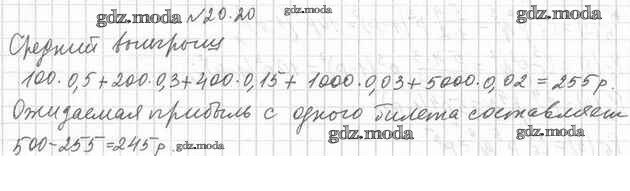 gdz.moda №20.20 gdz.moda
Средний выигрыш
gdz.moda
100·0,5+200·0,3+400·0,15+ 1000·0,03+5000·0,02 = 255р.
Ожидаемая прибыль с одного билета составляет
gdz.moda gdz.moda
500-255=245р. gdz.moda